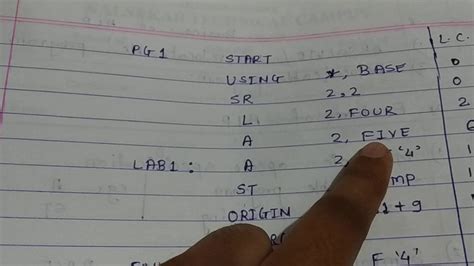 L.C.
PG1 START 0
USING *, BASE 0
SR 2,2 2
L 2, FOUR
A 2, FIVE
LAB1: A 2, '4'
ST MP
ORIGIN 1+9
F '4'